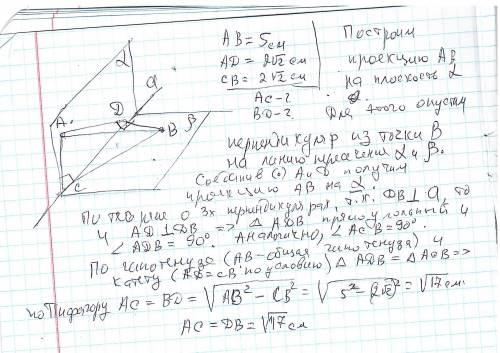 α
a
D
A
B
β
C
AB = 5 см
AD = 2√2 см
CB = 2√2 см
AC - ?
BD - ?
Построим
проекцию AB
на плоскость α
Для этого опустим
перпендикуляр из точки B
на линию пресечения α и β.
Соединив (·) A и D получим
проекцию AB на α.
По теореме о 3х перпендикулярах, т.к. DB ⊥ a, то
AD ⊥ DB => △ ADB прямоугольный и
∠ ADB = 90°. Аналогично, ∠ ACB = 90°.
По гипотенузе (AB - общая гипотенуза) и
катету (AD = CB по условию) △ ADB = △ ACB =>
по Пифагору AC = BD = √AB² - CB² = √5² - (2√2)² = √17 см.
AC = DB = √17 см